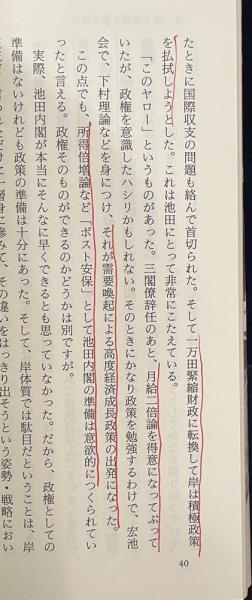 たときに国際収支の問題も絡んで首切られた。そして一万田緊縮財政に転換して岸は積極政策
を払拭しようとした。これは池田にとって非常にこたえている。
「このヤロー」というものがあった。三閣僚辞任のあと、月給二倍論を得意になってぶって
いたが、政権を意識したハシリかもしれない。そのときにかなり政策を勉強するわけで、宏池
会で、下村理論などを身につけ、それが需要喚起による高度経済成長政策の出発になった。
この点でも、所得倍増論など「ポスト安保」として池田内閣の準備は意欲的につくられてい
ったと言える。政権そのものができるのかどうかは別ですが。
実際、池田内閣が本当にそんなに早くできるとも思っていなかった。だから、政権としての
準備はないけれども政策の準備は十分にあった。そして、岸体質では駄目だということは、岸
一層身に滲みて、その違いをはっきり出そうという姿勢・戦略におい
40